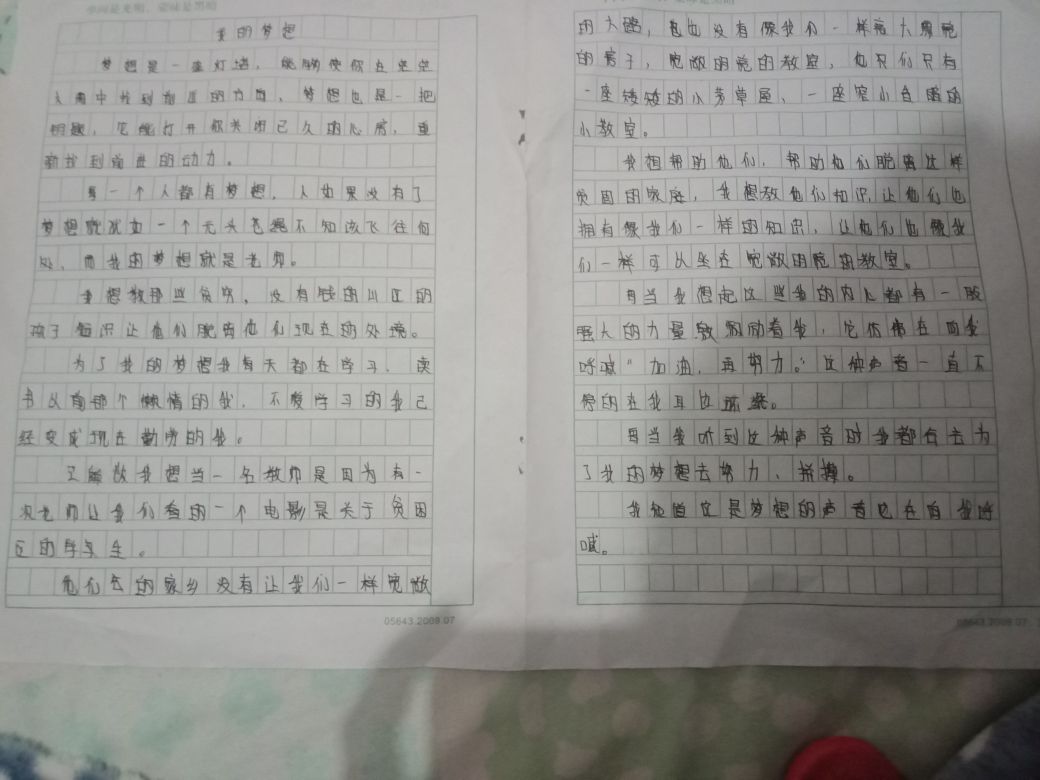 学问是光明，蒙昧是黑暗
我的梦想
梦想是一座灯塔，能够使你在茫茫
人海中找到前进的方向，梦想也是一把
钥匙，它能打开你关闭已久的心房，重
新找到前进的动力。
每一个人都有梦想，人如果没有了
梦想就犹如一个无头苍蝇不知该飞往何
处，而我的梦想就是老师。
我想教那些贫穷，没有钱的山区的
孩子知识让他们脱离他们现在的处境。
为了我的梦想我每天都在学习，读
书从前那个懒惰的我，不爱学习的我已
经变成现在勤劳的我。
之所以我想当一名教师是因为有一
次老师让我们看的一个电影是关于贫困
区的学生。
他们的家乡没有让我们一样宽敞
的大路，也没有像我们一样高大
的房子，宽敞明亮的教室，他们只有
一座矮矮的小茅草屋、一座窄小昏暗的
小教室。
我想帮助他们，帮助他们脱离这样
贫困的家庭，我想教他们知识，让他们也
拥有像我们一样的知识，让他们也像我
们一样可以坐在宽敞明亮的教室。
每当我想起这些我的内心都有一股
强大的力量鼓励着我，它仿佛在向我
呼喊“加油，再努力。”这种声音一直不
停的在我耳边环绕。
每当我听到这种声音时我都会去为
了我的梦想去努力、拼搏。
我知道这是梦想的声音它在向我呼
喊。
05643.2009.07
05643.2009.07.